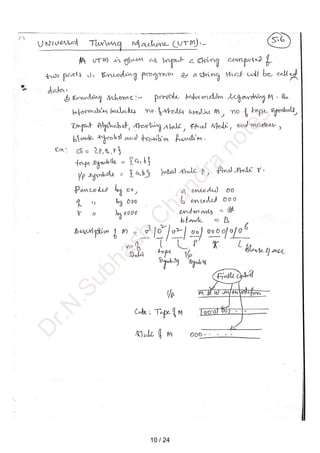 5.6
Universal Turing Machine (UTM):-
A UTM is given as Input a string composed of
two parts i) Encoding program 2) a string that will be called
data.
Encoding scheme:- provide Information regarding M. the
information includes no of states inside M, no of tape symbols,
Input Alphabet, starting state, final state, end marker,
blank symbol and transition function.
Ex: Q = {P, q, r}
tape symbols = {a, b}
i/p symbols = {a, b} Initial state P, final state r.
P encoded by 00, a encoded 00
q " by 000 b encoded 000
r " by 0000 endmarks = #
blank = B
Description of M =
tape i/p
states symbols symbols
Finite Control
i/p
Code: Tape of M
State of M 000
Dr.N.Subhash Chandra notes
10 / 24